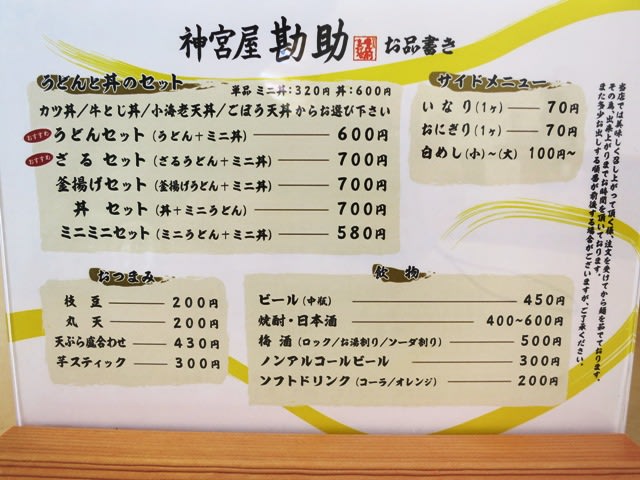 神宮屋 勘助 お品書き
うどんと丼のセット
単品 ミニ丼:320円 丼:600円
カツ丼/牛とじ丼/小海老天丼/ごぼう天丼 からお選び下さい
おすすめ うどんセット (うどん+ミニ丼) 600円
おすすめ ざるセット (ざるうどん+ミニ丼) 700円
釜揚げセット (釜揚げうどん+ミニ丼) 700円
丼 セット (丼+ミニうどん) 700円
ミニミニセット (ミニうどん+ミニ丼) 580円
サイドメニュー
いなり (1ヶ) 70円
おにぎり (1ヶ) 70円
白めし (小)~(大) 100円~
当店では美味しく召し上がって頂く為、注文を受けてから麺を茹でております。
その為、出来上がりまでお時間を頂いております。
また多少お出しする順番が前後する場合がございますが、ご了承ください。
おつまみ
枝豆 200円
丸天 200円
天ぷら盛合わせ 430円
芋スティック 300円
飲物
ビール (中瓶) 450円
焼酎・日本酒 400~600円
梅酒 (ロック/お湯割り/ソーダ割り) 500円
ノンアルコールビール 300円
ソフトドリンク (コーラ/オレンジ) 200円